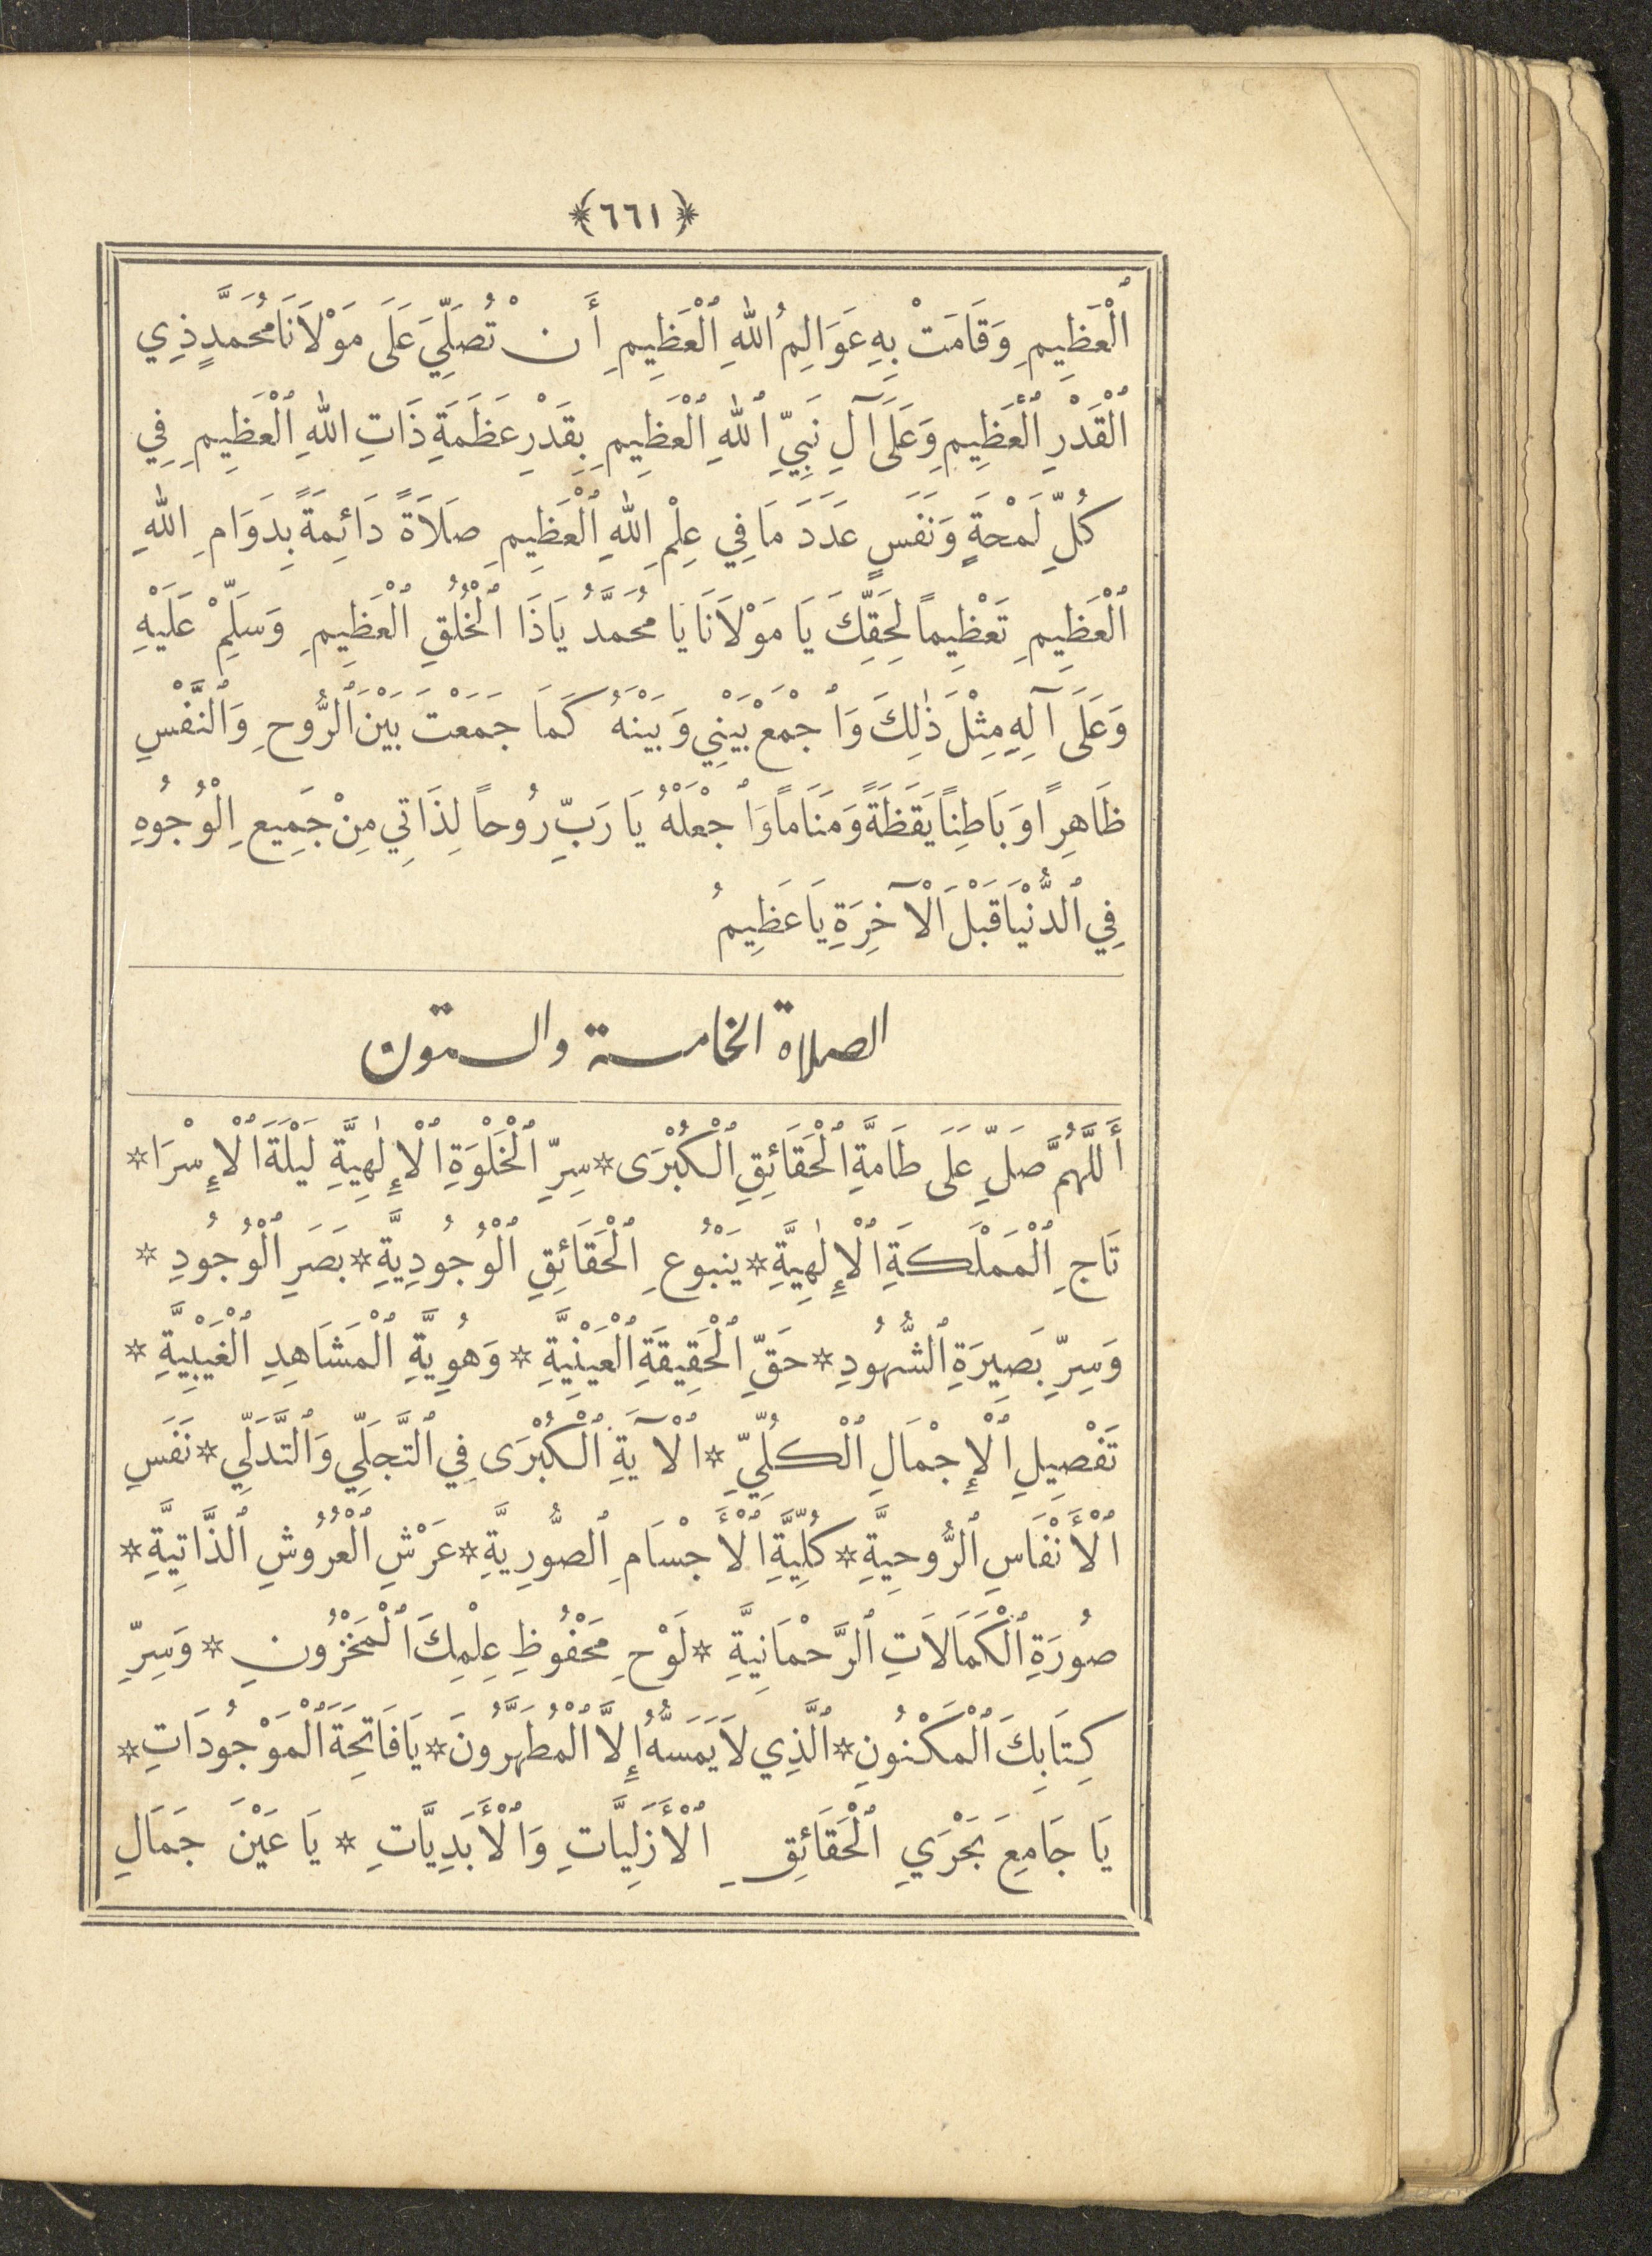 ﴿٦٦١﴾
ٱلْعَظِيمِ وَقَامَتْ بِهِ عَوَالِمُ ٱللهِ ٱلْعَظِيمِ أَنْ تُصَلِّيَ عَلَى مَوْلَانَا مُحَمَّدٍ ذِي
ٱلْقَدْرِ ٱلْعَظِيمِ وَعَلَى آلِ نَبِيِّ ٱللهِ ٱلْعَظِيمِ بِقَدْرِ عَظَمَةِ ذَاتِ اللهِ ٱلْعَظِيمِ فِي
كُلِّ لَمْحَةٍ وَنَفَسٍ عَدَدَ مَا فِي عِلْمِ اللهِ ٱلْعَظِيمِ صَلَاةً دَائِمَةً بِدَوَامِ اللهِ
ٱلْعَظِيمِ تَعْظِيماً لِحَقِّكَ يَا مَوْلَانَا يَا مُحَمَّدُ يَا ذَا ٱلْخُلُقِ ٱلْعَظِيمِ وَسَلِّمْ عَلَيْهِ
وَعَلَى آلِهِ مِثْلَ ذٰلِكَ وَٱجْمَعْ بَيْنِي وَبَيْنَهُ كَمَا جَمَعْتَ بَيْنَ ٱلرُّوحِ وَٱلنَّفْسِ
ظَاهِراً وَبَاطِناً يَقَظَةً وَمَنَاماً وَٱجْعَلْهُ يَا رَبِّ رُوحاً لِذَاتِي مِنْ جَمِيعِ الْوُجُوهِ
فِي ٱلدُّنْيَا قَبْلَ ٱلْآخِرَةِ يَا عَظِيمُ
الصلاة الخامسة والستون
أَللَّهُمَّ صَلِّ عَلَى طَامَّةِ ٱلْحَقَائِقِ ٱلْكُبْرَى * سِرِّ ٱلْخَلْوَةِ ٱلْإِلٰهِيَّةِ لَيْلَةَ ٱلْإِسْرَا *
تَاجِ ٱلْمَمْلَكَةِ ٱلْإِلٰهِيَّةِ * يَنْبُوعِ ٱلْحَقَائِقِ ٱلْوُجُودِيَّةِ * بَصَرِ ٱلْوُجُودِ *
وَسِرِّ بَصِيرَةِ ٱلشُّهُودِ * حَقِّ ٱلْحَقِيقَةِ ٱلْعَيْنِيَّةِ * وَهُوِيَّةِ ٱلْمَشَاهِدِ ٱلْغَيْبِيَّةِ *
تَفْصِيلِ ٱلْإِجْمَالِ ٱلْكُلِّيِّ * ٱلْآيَةِ ٱلْكُبْرَى فِي ٱلتَّجَلِّي وَٱلتَّدَلِّي * نَفَسِ
ٱلْأَنْفَاسِ ٱلرُّوحِيَّةِ * كُلِّيَّةِ ٱلْأَجْسَامِ ٱلصُّورِيَّةِ * عَرْشِ ٱلْعُرُوشِ ٱلذَّاتِيَّةِ *
صُورَةِ ٱلْكَمَالَاتِ ٱلرَّحْمَانِيَّةِ * لَوْحِ مَحْفُوظِ عِلْمِكَ ٱلْمَخْزُونِ * وَسِرِّ
كِتَابِكَ ٱلْمَكْنُونِ * ٱلَّذِي لَا يَمَسُّهُ إِلَّا ٱلْمُطَهَّرُونَ * يَا فَاتِحَةَ ٱلْمَوْجُودَاتِ *
يَا جَامِعَ بَحْرَيِ ٱلْحَقَائِقِ ٱلْأَزَلِيَّاتِ وَٱلْأَبَدِيَّاتِ * يَا عَيْنَ جَمَالِ